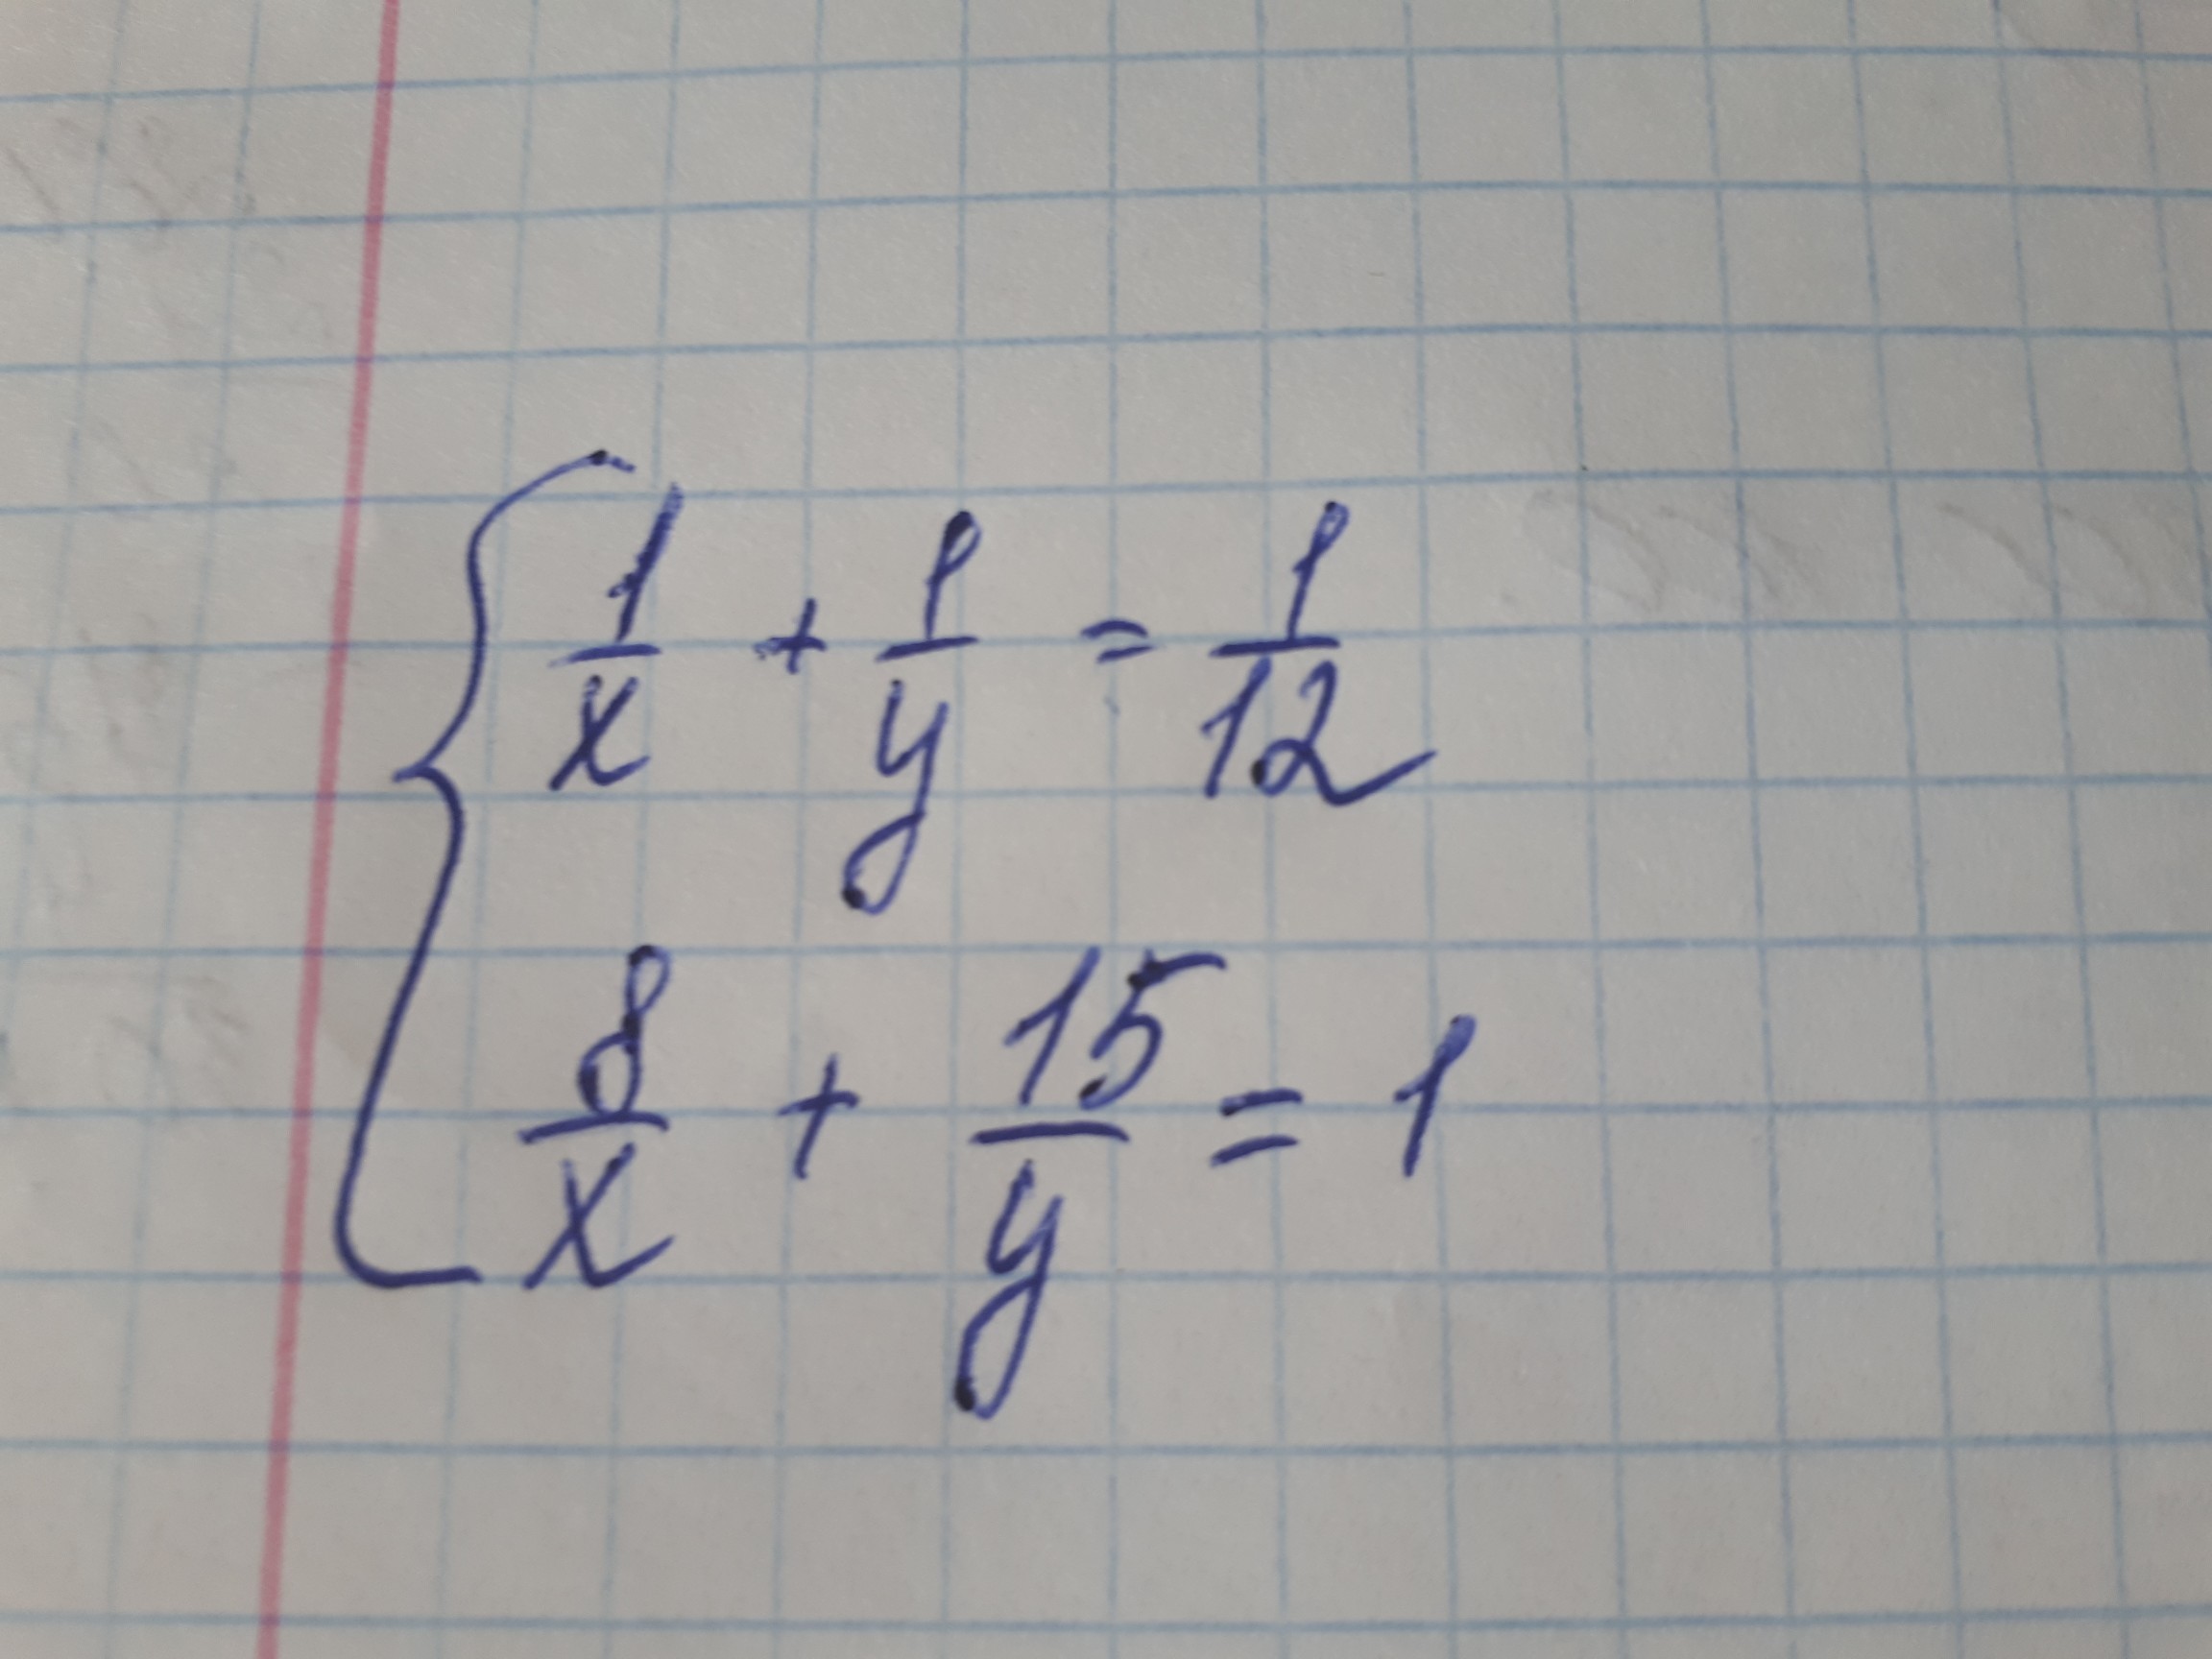 1/x + 1/y = 1/12
8/x + 15/y = 1